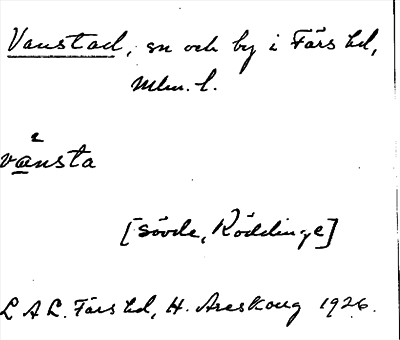 Vanstad, sn och by i Färs hd,
Mlm. l.
vånsta
[Sövde, Röddinge]
L A L. Färs hd, H. Areskoug 1926.